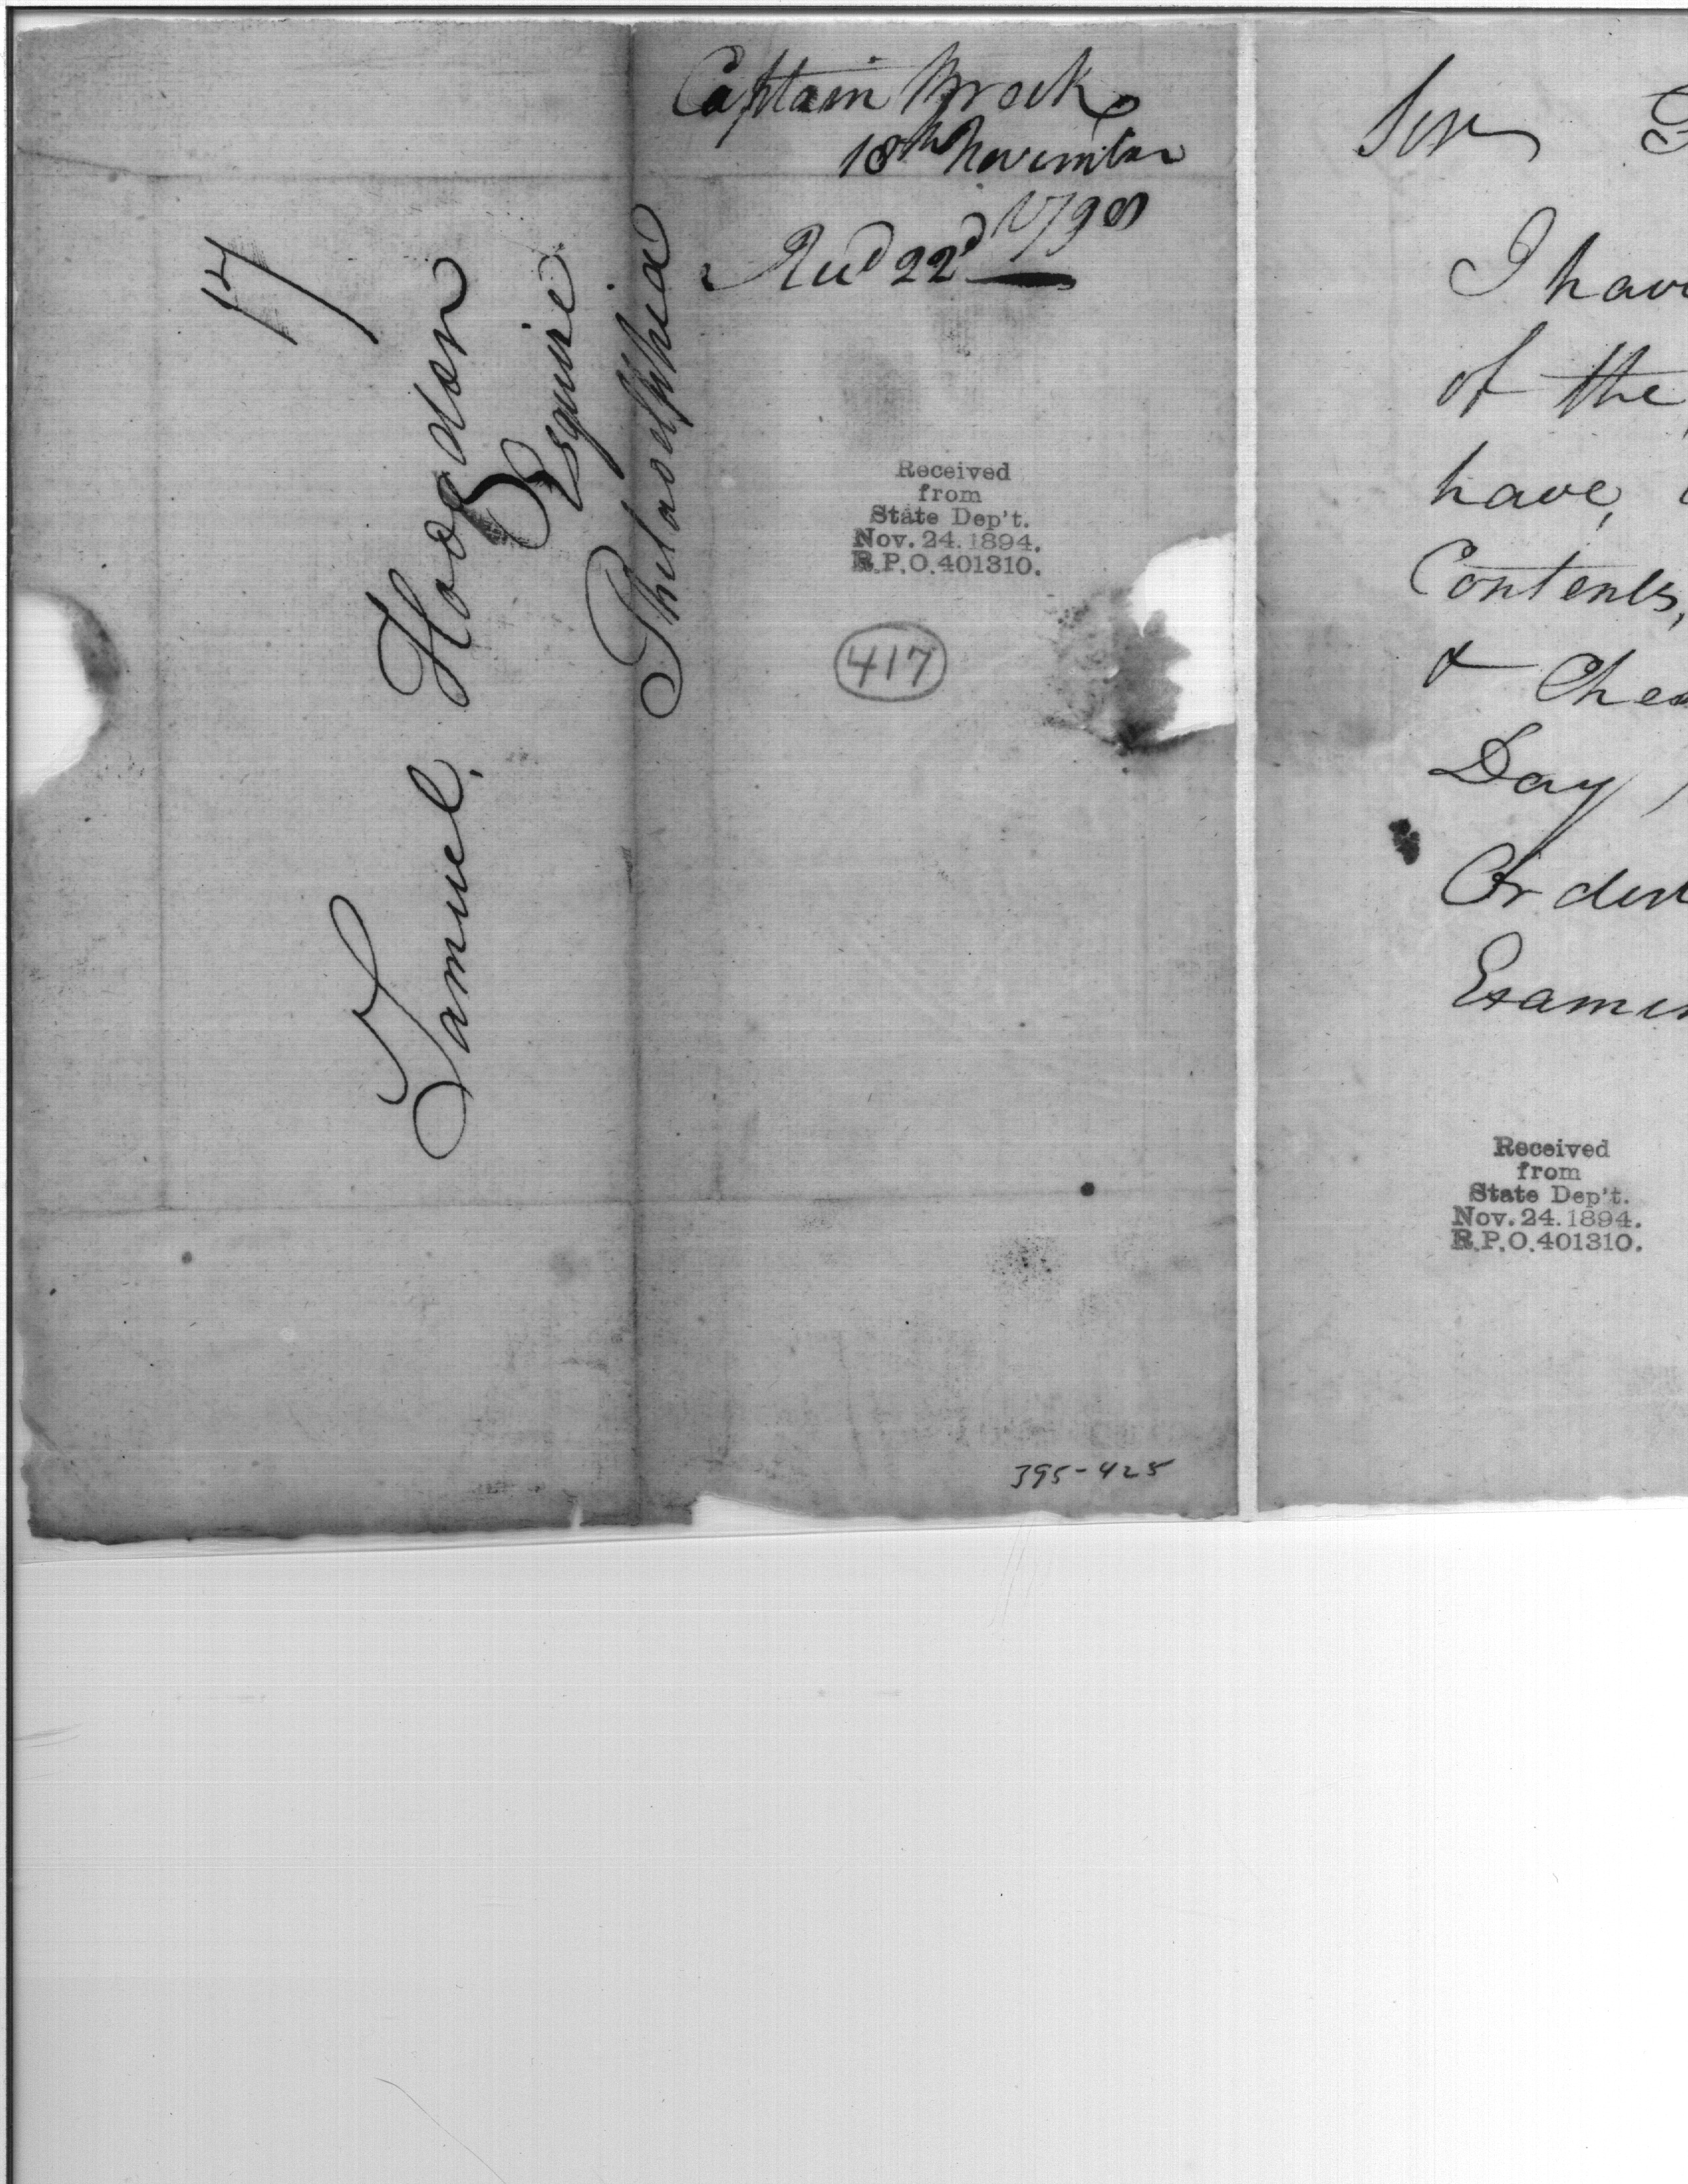 17
Samuel, Hodgdon
Esquire
Philadelphia
Captain Brock
18th November
1798
Recd 22d
Received
from
State Dep't.
Nov. 24. 1894.
R.P.O. 401310.
417
395-425
Sir
I have
of the
have,
Contents,
&
Day
Order
Examin
Received
from
State Dep't.
Nov. 24. 1894.
R.P.O. 401310.